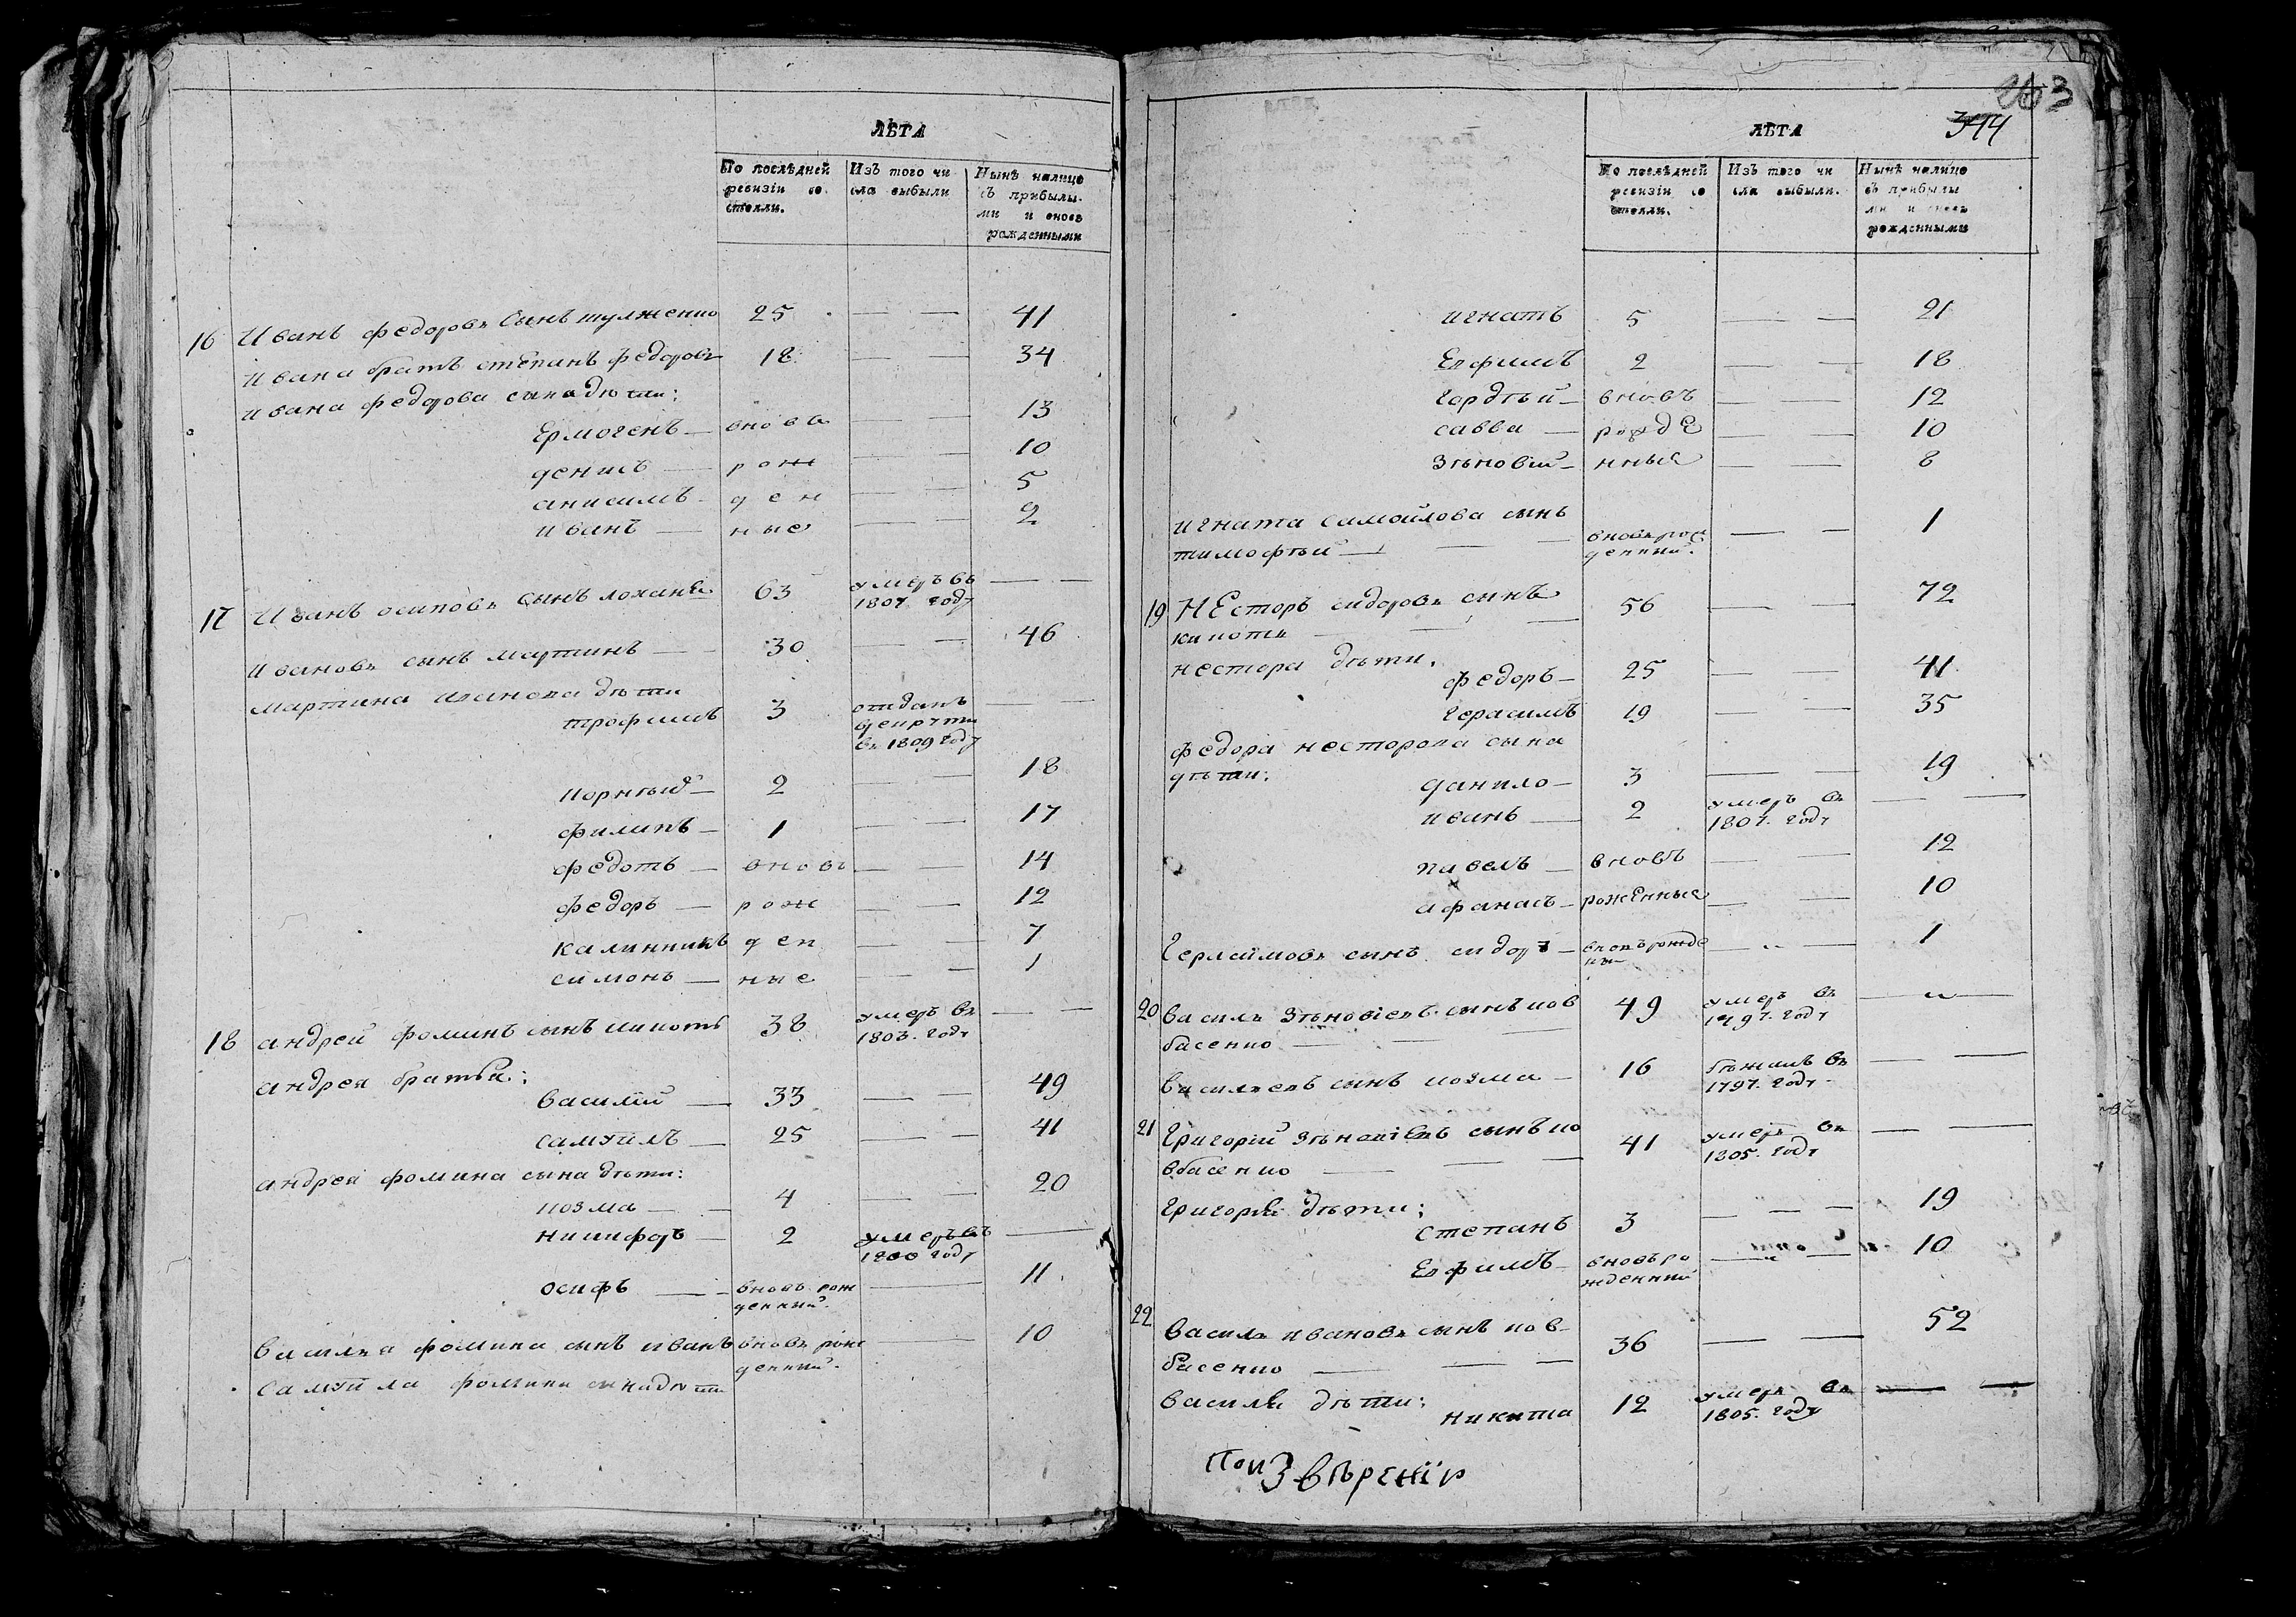 ЛѢТА
По послѣдней ревизіи со стояли.
Изъ того чи сла выбыли
Нынѣ налицо съ прибылы- ми и вновь рожденными
16 Иванъ федоровъ Сынъ тулженко 25 — — 41
ивана братъ степанъ федоровъ 18 — — 34
ивана федорова сына дѣти:
Ермогенъ — вновь — — 13
денисъ — рож — — 10
анисимъ — ден — — 5
иванъ — ные — — 2
17 Иванъ осиповъ сынъ 63 умеръ въ 1807 году — —
ивановъ сынъ мартинъ — 30 — — 46
мартина иванова дѣти
трофимъ 3 отданъ въ 1809 году — —
корнѣй — 2 — — 18
филипъ — 1 — — 17
федотъ — вновь — — 14
федоръ — рож — — 12
калинникъ ден — — 7
симонъ — ные — — 1
18 андрей фоминъ сынъ кипоть 38 умеръ въ 1803. году — —
андрея братья:
василій — 33 — — 49
самуилъ — 25 — — 41
андрея фомина сына дѣти:
козма — — 4 — — 20
никифоръ — 2 умеръ въ 1800 году —
осифъ — — вновь рож денный. — 11
василья фомина сынъ иванъ вновь рож денный. — 10
самуила фомина сына дѣти
263
344
ЛѢТА
По послѣдней ревизіи со стояли.
Изъ того чи сла выбыли.
Нынѣ налицо съ прибылы ми и вновь рожденными
игнатъ 5 — — 21
Евфимъ 2 — — 18
гордѣй — вновь — — 12
савва — рожде — — 10
Зѣновій — нные — — 8
игната самойлова сынъ
тимофѣй — — — вновь рож денный. — — 1
19 НЕсторъ сидоровъ сынъ 56 — — 72
кипоть — — —
нестера дѣти.
федоръ — 25 — — 41
герасимъ 19 — — 35
федора несторова сына
дѣти:
данило — 3 — — 19
иванъ — 2 умеръ въ 1807. году — —
павелъ — вновь — — 12
афанасъ — рожЕнные — — 10
Герасимовъ сынъ сидоръ — вновь рожде — — 1
20 василь Зѣновіевъ сынъ ков 49 умеръ въ 1797. году — —
басенко — — —
васильевъ сынъ козма — 16 бѣжалъ въ 1797. году — —
21 Григорій Зѣновіевъ сынъ ко 41 умеръ въ 1805. году — —
вбасенко — — —
григорія дѣти:
степанъ 3 — — — 19
Евфимъ — вновь ро жденный — — 10
22 василь ивановъ сынъ ков- 36 — — 52
басенко — — —
василя дѣти:
никита 12 умеръ въ 1805. году — —